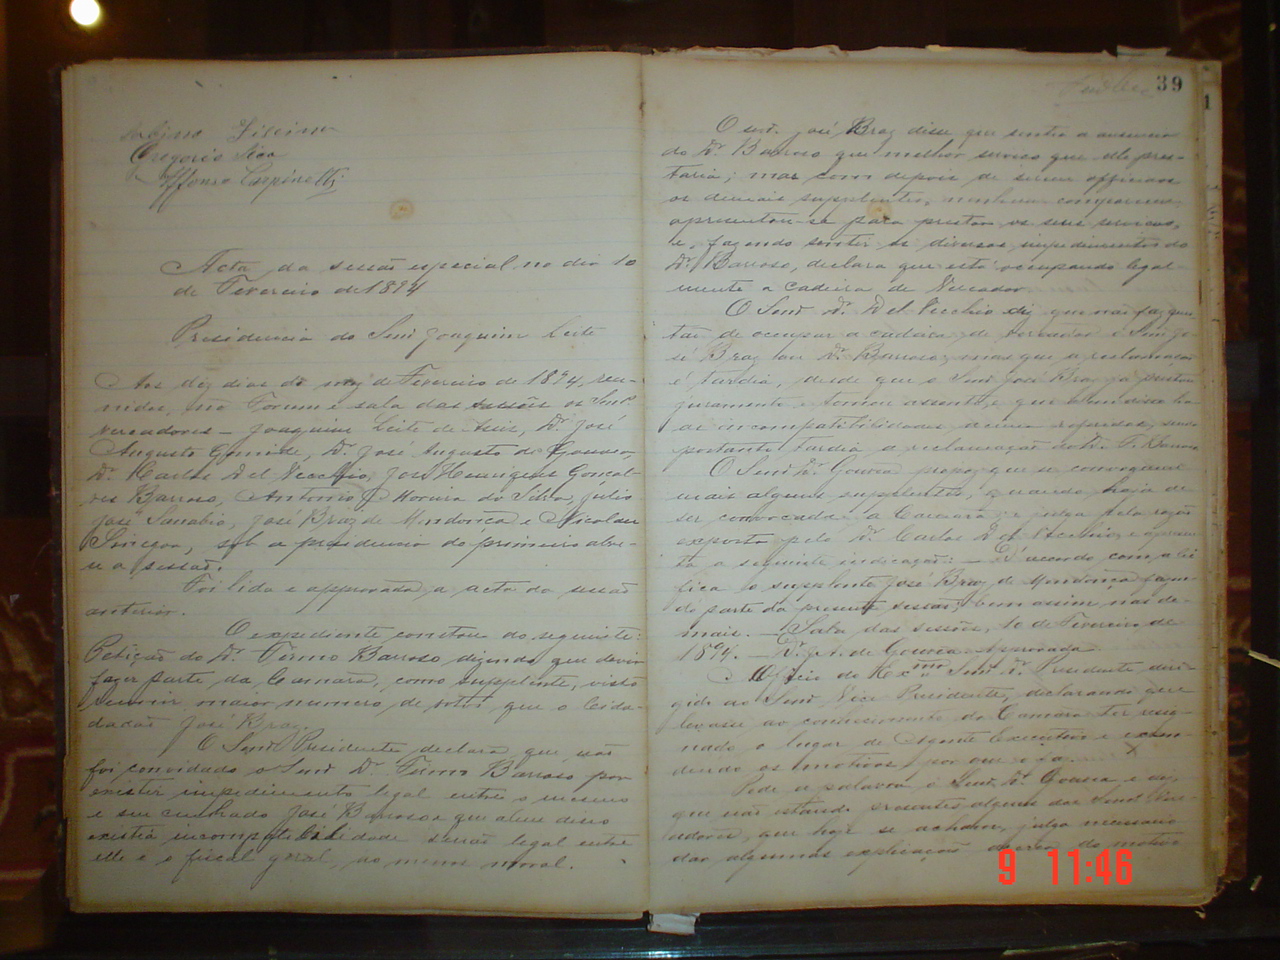 Gregorio
Affonso Carpinetti
Acta da sessão especial no dia 10
de Fevereiro de 1894
Presidencia do Snr Joaquim Leite
Aos dez dias do mez de Fevereiro de 1894, reu-
nidos, no Forum e sala das sessões os Snrs
Vereadores – Joaquim Leite de Assis, Dr. José
Augusto José Augusto de Gouvea,
Dr. Carlos Del Vecchio, José Henriques Gonçal-
ves Barroso, Antonio Moreira da Silva, Julio
José José Braz de Mendonça e Nicolau
sob a presidencia do primeiro abre-
se a sessão.
Foi lida e approvada a acta da sessão
anterior.
O expediente constou do seguinte:
Petição do Dr. Firmo Barroso dizendo que devia
fazer parte da Camara, como supplente, visto
maior numero de votos que o Cida-
dadão José Braz.
O Snr. Presidente declara que não
foi convidado o Snr Dr. Firmo Barroso por
existir impedimento legal entre o mesmo
e seu cunhado José Barroso e que alem disso
existia incompatibilidade senão legal entre
elle e o fiscal geral, ao menos moral.
39
O snr. José Braz disse que sentia a ausencia
do Dr. Barroso que melhor serviço que elle pres-
taria; mas como depois de
os demais supplentes, nenhum
apresentou-se para prestar os seus serviços,
e, fazendo sentir os diversos impedimentos do
Dr. Barroso, declara que está occupando legal-
mente a cadeira de Vereador.
O Snr. Dr. Del Vecchio diz que não faz ques-
tão de occupar a cadeira de vereador o Snr Jo-
sé Braz ou Dr. Barroso, mas que a reclamação
é tardia, desde que o Snr José Braz já prestou
juramento e tomou assento, e que
as incompatibilidades acima referidas, sendo
portanto tardia a reclamação do Dr. F. Barroso
O Snr Dr. Gouvea propoz que se convoquem
mais alguns supplentes, quando haja de
ser convocada a Camara; e julga pela razão
exposta pelo Dr. Carlos Del Vecchio, e apresen-
ta a seguinte indicação: – D'accordo com a lei
fica o supplente José Braz de Mendonça fazen-
do parte da presente sessão, bem assim nas de-
mais. – Sala das sessões, 10 de Fevereiro de
1894. – de Gouvea. Approvada.
Officio do Exmo Snr Dr. Presidente diri-
gido ao Snr Vice Presidente, declarando que
levasse ao conhecimento da Camara ter resig-
nado o lugar de Agente Executivo e
os motivos por que o faz.
Pede a palavra o Snr. Dr. Gouvea e diz,
que não estando presentes alguns dos Snrs Ve-
adores, que hoje se acham, julga necessario
dar algumas explicação acerca do motivo
9 11:46